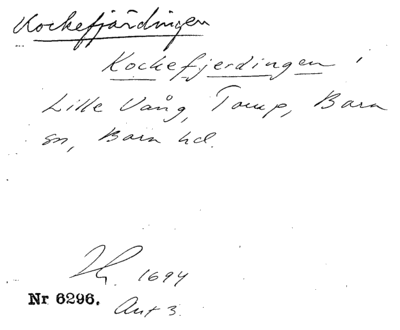 Kockefjärdingen
Kockefjerdingen i
Lille Vång, Torup, Bara
sn, Bara hd.
1694
Nr 6296. Ant 3.